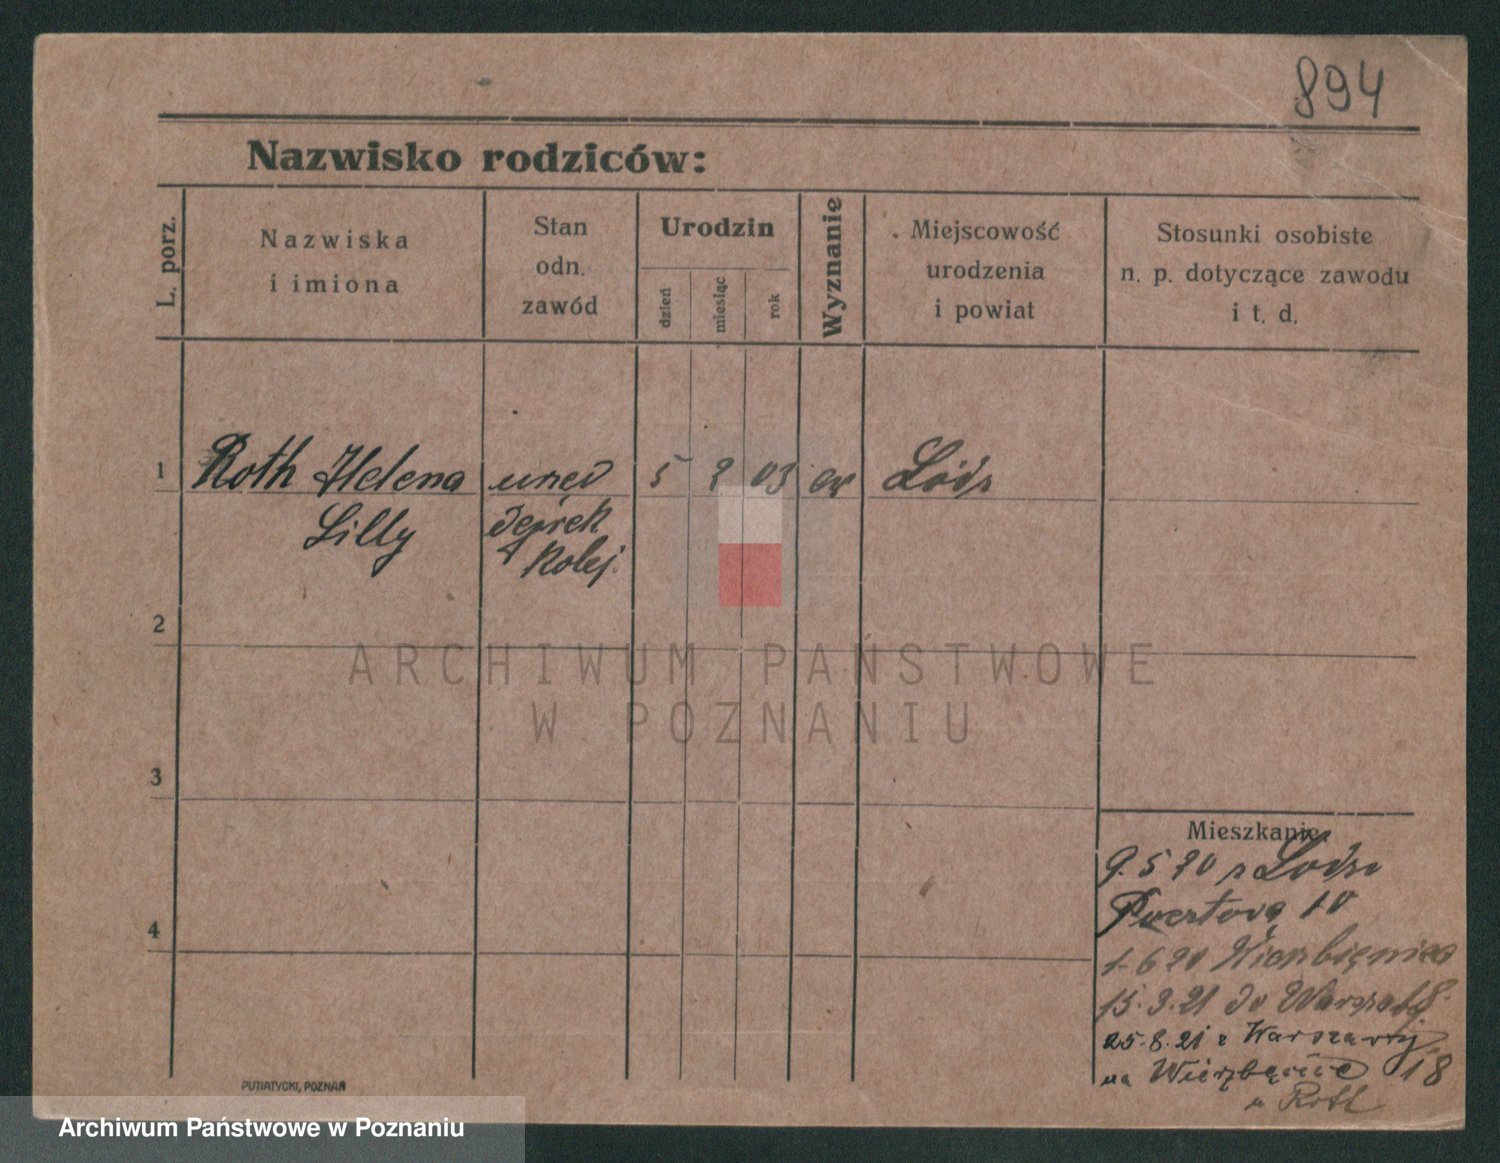 894
Nazwisko rodziców:
L. porz.
Nazwiska
i imiona
Stan
odn.
zawód
Urodzin
dzień
miesiąc
rok
Wyznanie
Miejscowość
urodzenia
i powiat
Stosunki osobiste
n. p. dotyczące zawodu
i t. d.
1 Roth Helena 5 2 03 ew Łódz
Lilly
Kolej.
2
ARCHIWUM PAŃSTWOWE
W POZNANIU
3
Mieszkanie
9.5 20 z Łodzi
10
4
1-6 20 Wierzbięcice
15.3.21 do Warszawy
25.8.21 z Warszawy
na Wierzbięcice 18
u Roth
PUTIATYCKI, POZNAŃ
Archiwum Państwowe w Poznaniu